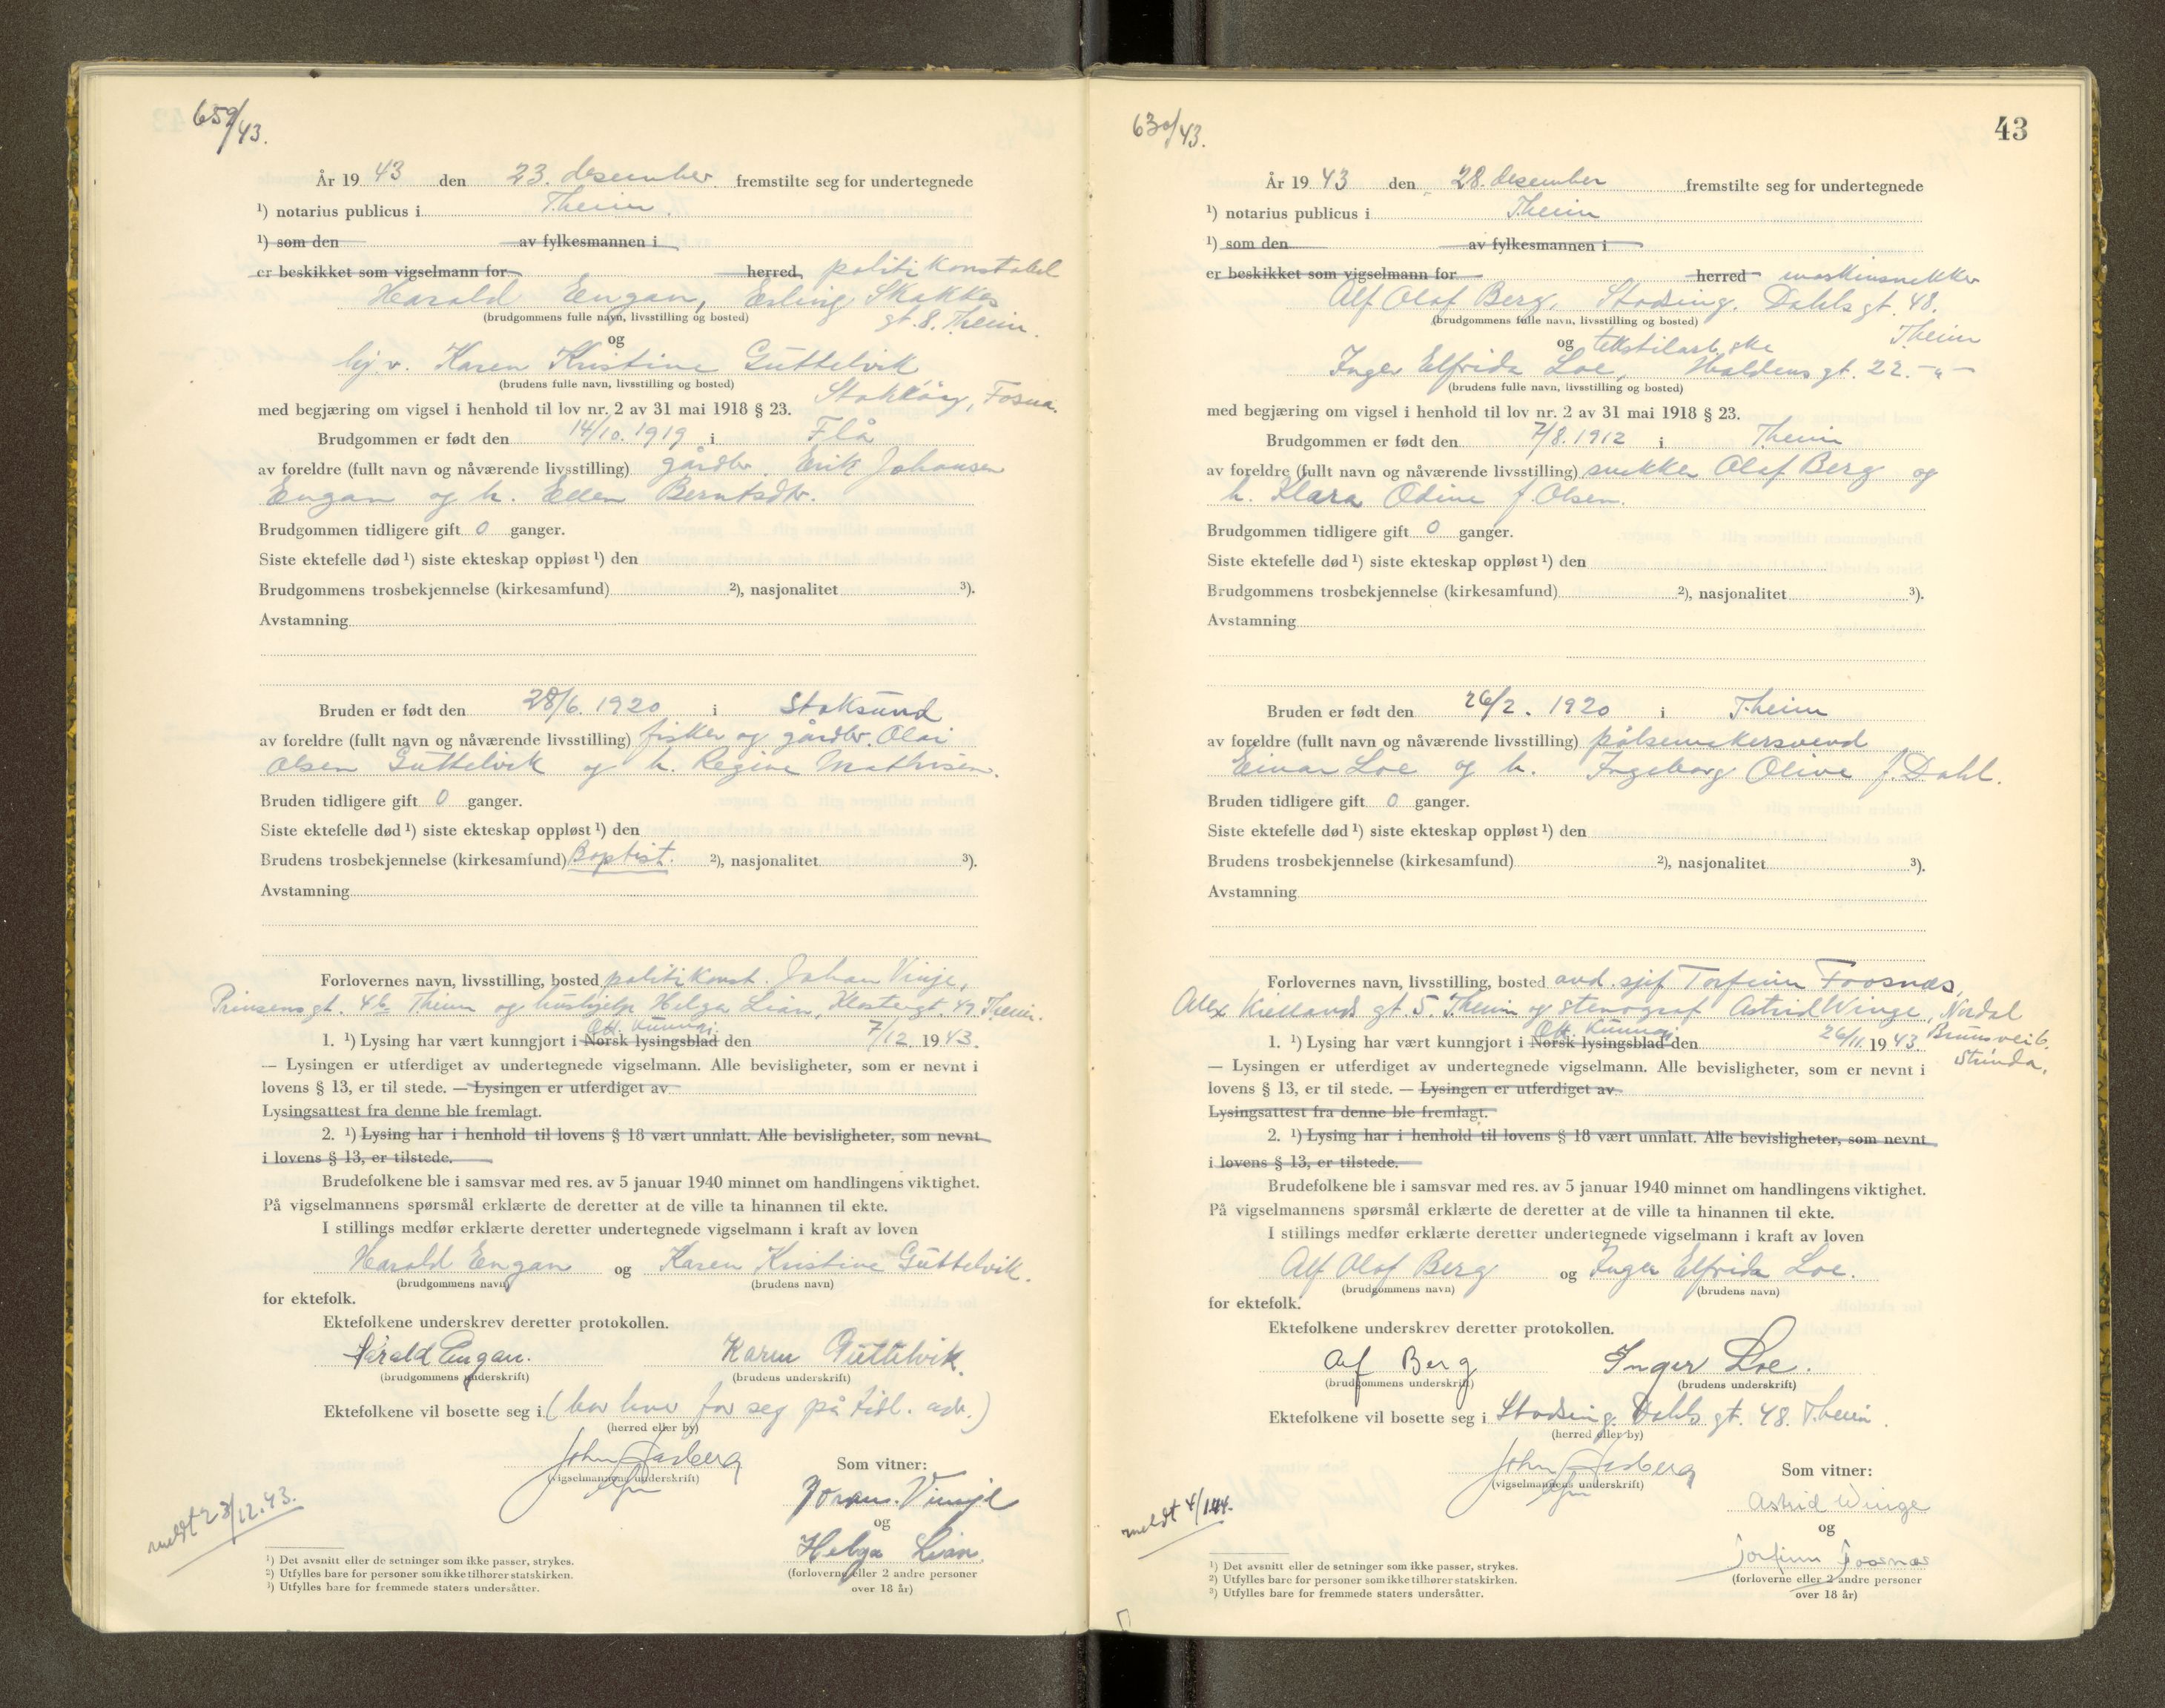 659/43.
År 19 43 den 23. desember fremstilte seg for undertegnede
¹) notarius publicus i Theim.
¹) som den av fylkesmannen i
er beskikket som vigselmann for herred politikonstabel
Harald Engan, Erling Skakkes
(brudgommens fulle navn, livsstilling og bosted) gt. 8. Theim.
og
hj.v. Karen Kristine Guttelvik
(brudens fulle navn, livsstilling og bosted)
Stokköy, Fosna.
med begjæring om vigsel i henhold til lov nr. 2 av 31 mai 1918 § 23.
Brudgommen er født den 14/10. 1919 i Flå
av foreldre (fullt navn og nåværende livsstilling) gårdbr. Erik Johansen
Engan og h. Ellen Berntsdtr.
Brudgommen tidligere gift 0 ganger.
Siste ektefelle død ¹) siste ekteskap oppløst ¹) den
Brudgommens trosbekjennelse (kirkesamfund) ²), nasjonalitet ³).
Avstamning
Bruden er født den 28/6. 1920 i Stoksund
av foreldre (fullt navn og nåværende livsstilling) fisker og gårdbr. Olai
Olsen Guttelvik og h. Regine Mathisen.
Bruden tidligere gift 0 ganger.
Siste ektefelle død ¹) siste ekteskap oppløst ¹) den
Brudens trosbekjennelse (kirkesamfund) Baptist. ²), nasjonalitet ³).
Avstamning
Forlovernes navn, livsstilling, bosted politikonst. Johan Vinje,
Prinsensgt. 4b Theim og hushjelp Helga Lian, Klostergt. 47 Theim.
Off. Kunngj.
1. ¹) Lysing har vært kunngjort i Norsk lysingsblad den 7/12 19 43.
— Lysingen er utferdiget av undertegnede vigselmann. Alle bevisligheter, som er nevnt i
lovens § 13, er til stede. — Lysingen er utferdiget av
Lysingsattest fra denne ble fremlagt.
2. ¹) Lysing har i henhold til lovens § 18 vært unnlatt. Alle bevisligheter, som nevnt
i lovens § 13, er tilstede.
Brudefolkene ble i samsvar med res. av 5 januar 1940 minnet om handlingens viktighet.
På vigselmannens spørsmål erklærte de deretter at de ville ta hinannen til ekte.
I stillings medfør erklærte deretter undertegnede vigselmann i kraft av loven
Harald Engan og Karen Kristine Guttelvik.
(brudgommens navn) (brudens navn)
for ektefolk.
Ektefolkene underskrev deretter protokollen.
Harald Engan. Karen Guttelvik.
(brudgommens underskrift) (brudens underskrift)
Ektefolkene vil bosette seg i (bor hver for seg på tidl. adr.)
(herred eller by)
John Aasberg Som vitner:
(vigselmannens underskrift)
Johan. Vinje
og
Helga Lian
(forloverne eller 2 andre personer
over 18 år)
meldt 23/12.43.
¹) Det avsnitt eller de setninger som ikke passer, strykes.
²) Utfylles bare for personer som ikke tilhører statskirken.
³) Utfylles bare for fremmede staters undersåtter.
630/43.
43
År 19 43 den 28. desember fremstilte seg for undertegnede
¹) notarius publicus i Theim
¹) som den av fylkesmannen i
er beskikket som vigselmann for herred maskinsnekker
Alf Olaf Berg, Stadsing. Dahls gt. 48.
(brudgommens fulle navn, livsstilling og bosted) Theim
og tekstilarb.ske
Inger Elfrida Loe, Haldens gt. 22. -"-
(brudens fulle navn, livsstilling og bosted)
med begjæring om vigsel i henhold til lov nr. 2 av 31 mai 1918 § 23.
Brudgommen er født den 7/8. 1912 i Theim
av foreldre (fullt navn og nåværende livsstilling) snekker Olaf Berg og
h. Klara Odine f. Olsen.
Brudgommen tidligere gift 0 ganger.
Siste ektefelle død ¹) siste ekteskap oppløst ¹) den
Brudgommens trosbekjennelse (kirkesamfund) ²), nasjonalitet ³).
Avstamning
Bruden er født den 26/2. 1920 i Theim
av foreldre (fullt navn og nåværende livsstilling) pölsemakersvend
Einar Loe og h. Ingeborg Olive f. Dahl.
Bruden tidligere gift 0 ganger.
Siste ektefelle død ¹) siste ekteskap oppløst ¹) den
Brudens trosbekjennelse (kirkesamfund) ²), nasjonalitet ³).
Avstamning
Forlovernes navn, livsstilling, bosted avd. sjef Torfinn Foosnæs,
Alex Kiellands gt 5. Theim og stenograf Astrid Winge, Nordal
Off. Kunngj. Brunsvei 6.
1. ¹) Lysing har vært kunngjort i Norsk lysingsblad den 26/11. 19 43.
Strinda.
— Lysingen er utferdiget av undertegnede vigselmann. Alle bevisligheter, som er nevnt i
lovens § 13, er til stede. — Lysingen er utferdiget av
Lysingsattest fra denne ble fremlagt.
2. ¹) Lysing har i henhold til lovens § 18 vært unnlatt. Alle bevisligheter, som nevnt
i lovens § 13, er tilstede.
Brudefolkene ble i samsvar med res. av 5 januar 1940 minnet om handlingens viktighet.
På vigselmannens spørsmål erklærte de deretter at de ville ta hinannen til ekte.
I stillings medfør erklærte deretter undertegnede vigselmann i kraft av loven
Alf Olaf Berg og Inger Elfrida Loe.
(brudgommens navn) (brudens navn)
for ektefolk.
Ektefolkene underskrev deretter protokollen.
Alf Berg Inger Loe.
(brudgommens underskrift) (brudens underskrift)
Ektefolkene vil bosette seg i Stadsing. Dahls gt. 48. Theim.
(herred eller by)
John Aasberg Som vitner:
(vigselmannens underskrift)
Astrid Winge
og
Torfinn Foosnæs
(forloverne eller 2 andre personer
over 18 år)
meldt 4/1 44.
¹) Det avsnitt eller de setninger som ikke passer, strykes.
²) Utfylles bare for personer som ikke tilhører statskirken.
³) Utfylles bare for fremmede staters undersåtter.